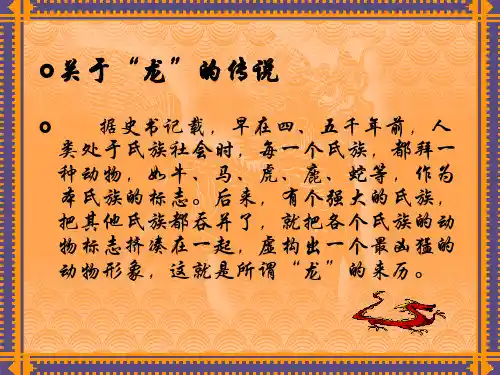 关于“龙”的传说
据史书记载，早在四、五千年前，人
类处于氏族社会时，每一个氏族，都拜一
种动物，如牛、马、虎、鹿、蛇等，作为
本氏族的标志。后来，有个强大的氏族，
把其他氏族都吞并了，就把各个氏族的动
物标志挤凑在一起，虚构出一个最凶猛的
动物形象，这就是所谓“龙”的来历。